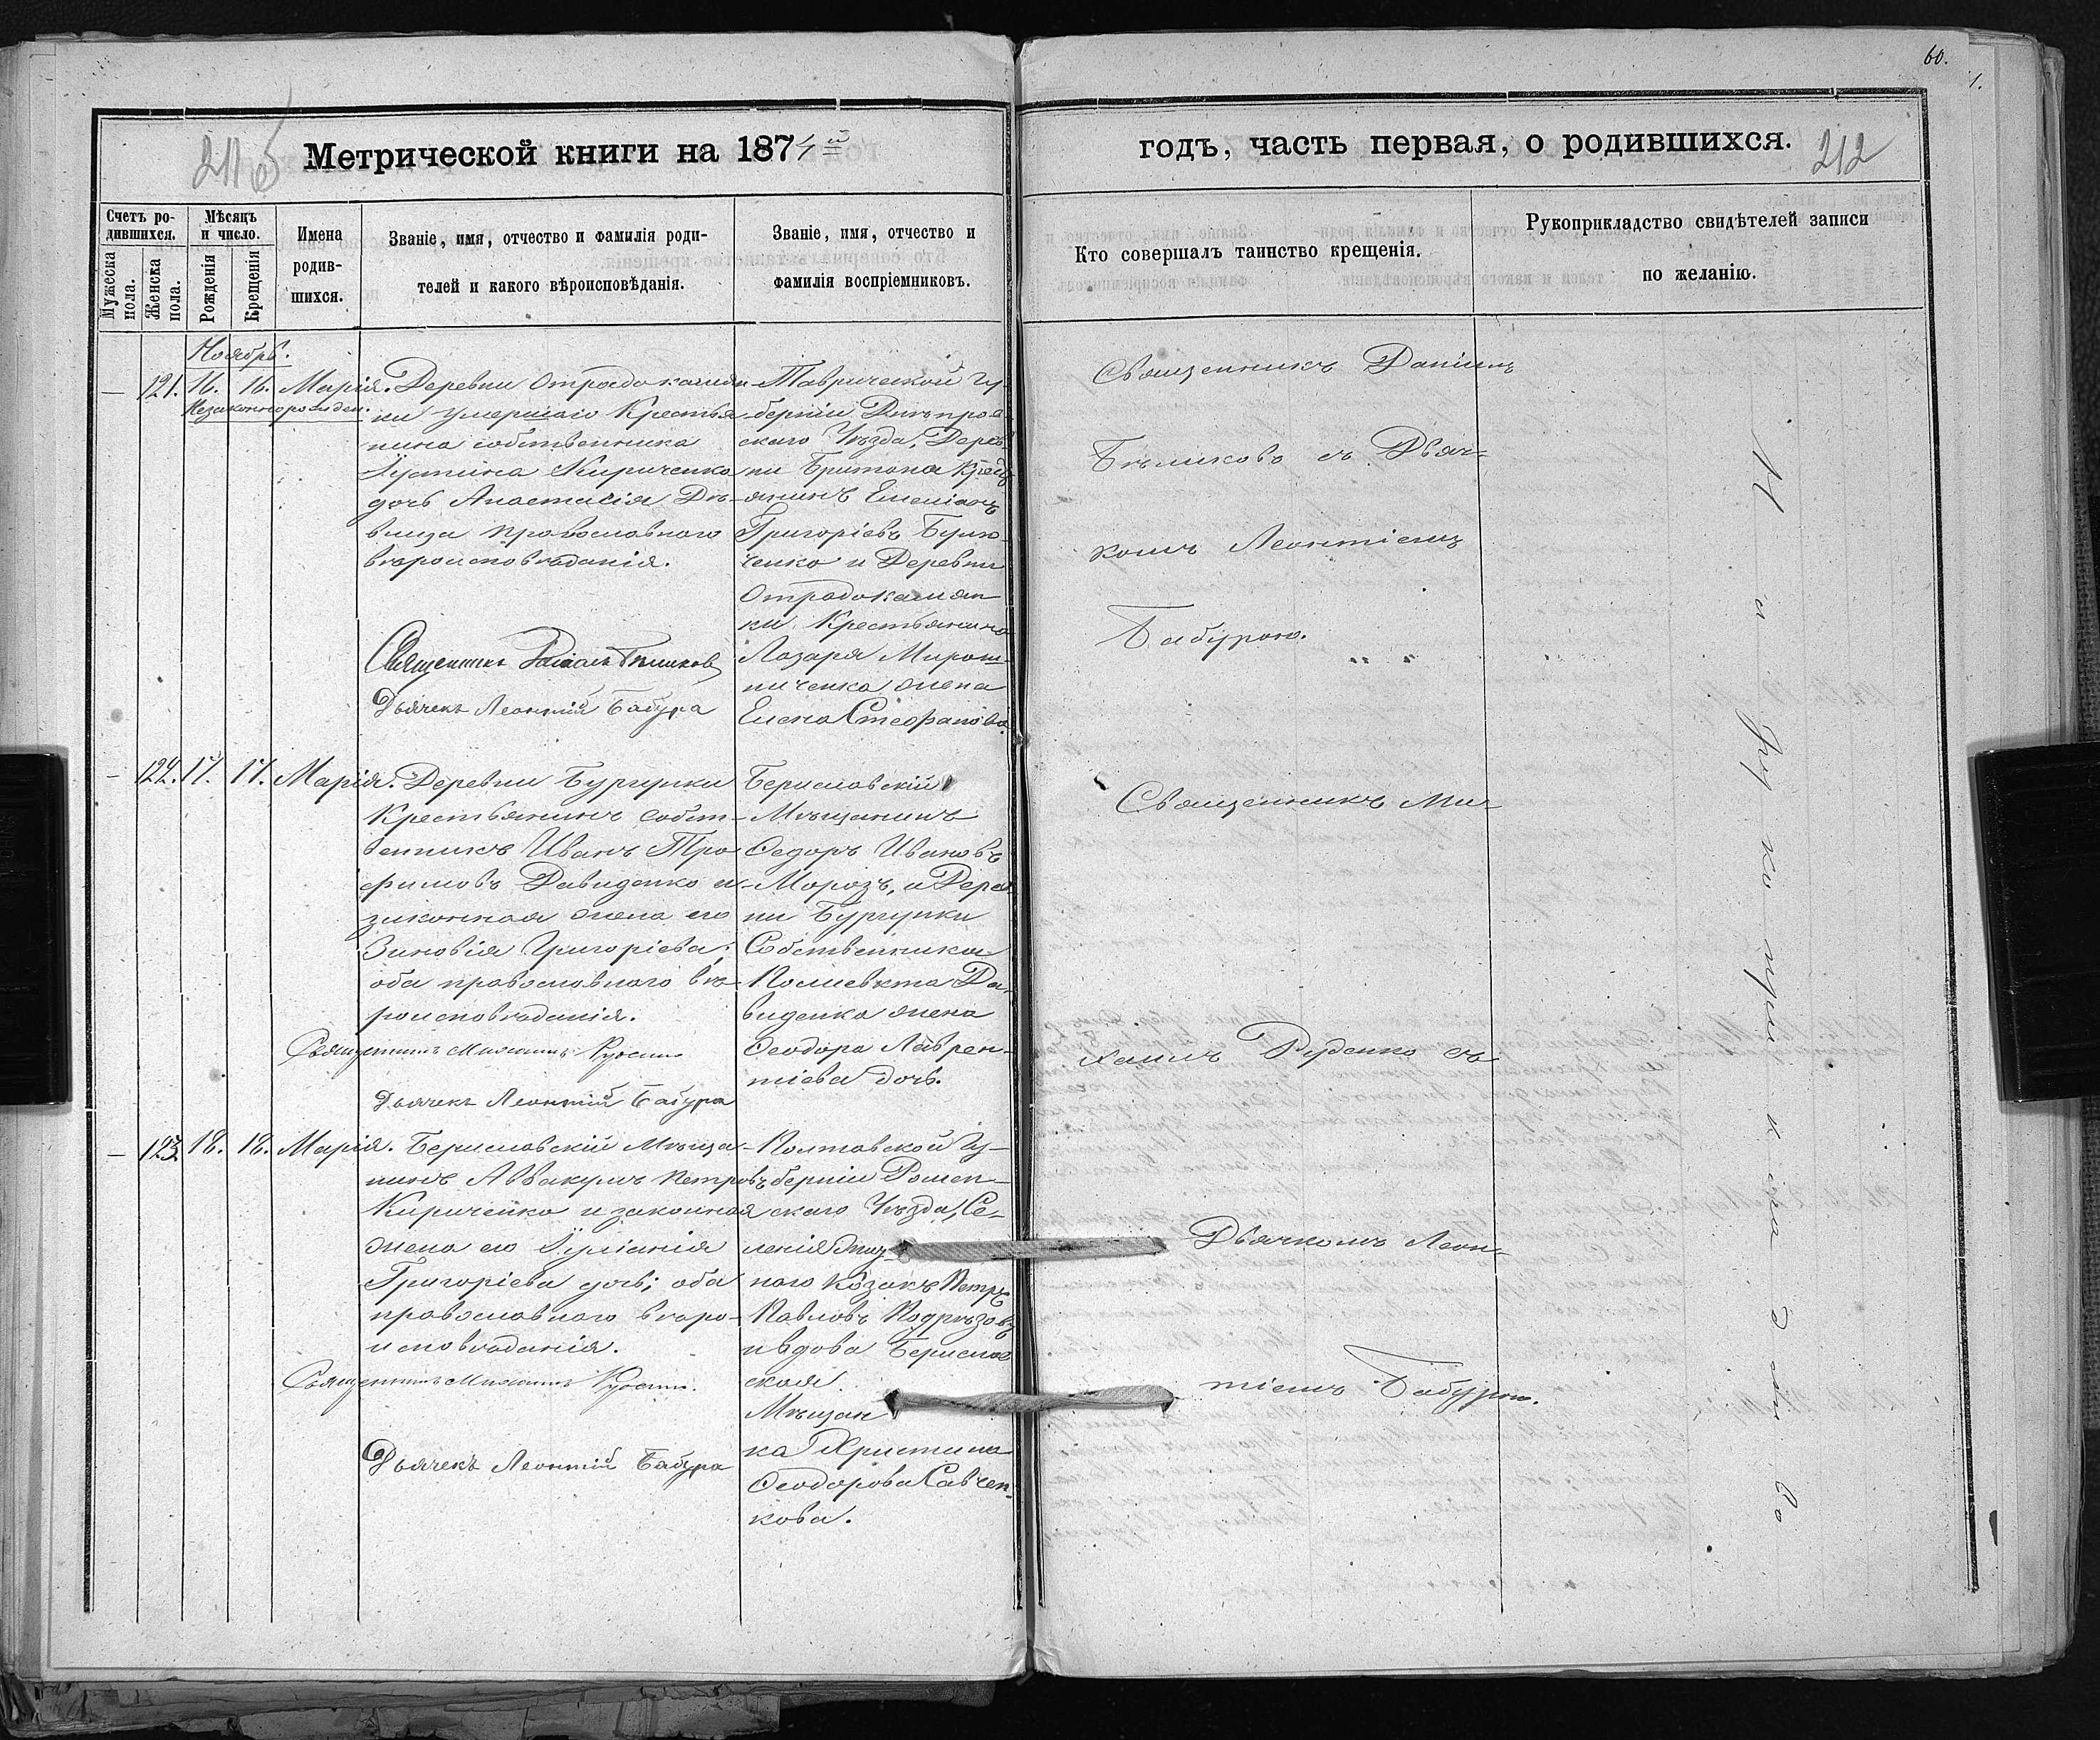 60.
1.
Метрической книги на 1874й
годъ, часть первая, о родившихся.
212
Счетъ ро-
дившихся.
Мужеска
пола.
Женска
пола.
Мѣсяцъ
и число.
Рожденія
Крещенія
Имена
родив-
шихся.
Званіе, имя, отчество и фамилія роди-
телей и какого вѣроисповѣданія.
Званіе, имя, отчество и
фамилія воспріемниковъ.
Кто совершалъ таинство крещенія.
Рукоприкладство свидѣтелей записи
по желанію.
Ноябрь.
— 121. 16. 16. Марія.
Незаконнорожден.
Деревни Отрадокамян
ки умершаго Крестья
нина собственника
Іустина Кириченко
дочь Анастасія Дѣ-
вица православного
вѣроисповѣданія.
Священникъ Даніилъ Бѣликовъ
Дьячекъ Леонтій Бабура
Таврической гу-
берніи Днѣпров
скаго Уѣзда, Дерев
ни Британа Крест
янинъ Емеліанъ
Григоріевъ Бурл
ченко и Деревни
Отрадокамян
ки Крестьянина
Лазаря Мирош-
ниченка жена
Елена Стефанова.
Священникъ Даніилъ
Бѣликовъ съ Дьяч-
комъ Леонтіемъ
Бабурою.
— 122. 17. 17. Марія.
Деревни Бургунки
Крестьянинъ собст-
венникъ Иванъ Тро
фимовъ Давиденко и
законная жена его
Зиновія Григоріева;
оба православного вѣ-
роисповѣданія.
Священникъ Михаилъ Руденко
Дьячекъ Леонтій Бабура
Бериславскій
Мѣщанинъ
Ѳедоръ Ивановъ
Морозъ, и Дерев
ни Бургунки
Собственника
Полиевкта Да-
виденка жена
Ѳеодора Лаврен-
тіева дочь.
Священникъ Ми-
хаилъ Руденко съ
Дьячкомъ Леон-
тіемъ Бабурою.
— 123. 18. 18. Марія.
Бериславскій Мѣща-
нинъ Аввакумъ Петровъ
Кириченко и законная
жена его Іуліанія
Григоріева дочь; оба
православного вѣро-
исповѣданія.
Священникъ Михаилъ Руденко.
Дьячекъ Леонтій Бабура
Полтавской Гу-
берніи Ромен-
скаго Уѣзда, Се-
ленія
ного Козакъ Петръ
Павловъ Подрѣзовъ
и вдова Берислав
ская
Мѣщан
ка Христина
Ѳеодорова Савчен-
кова.
Н и рукоприкладство